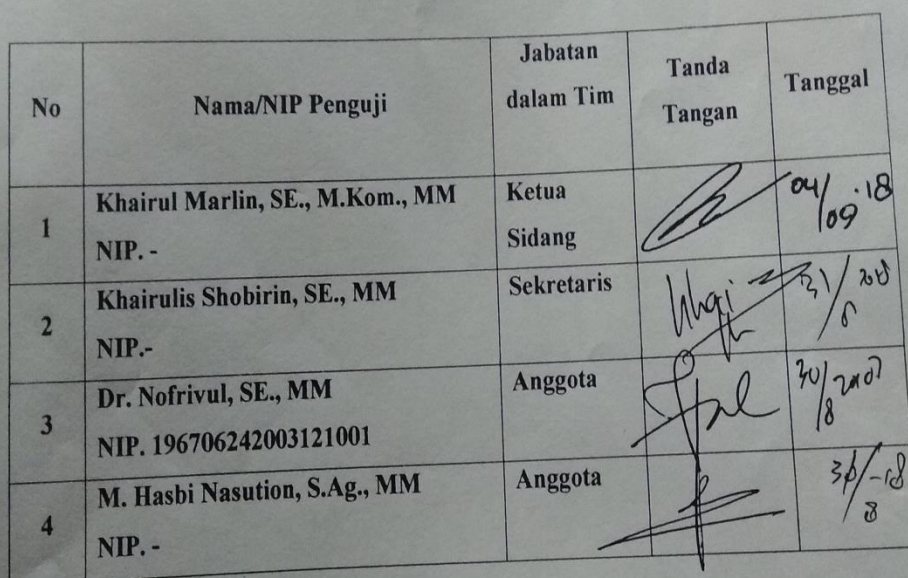 No
Nama/NIP Penguji
Jabatan
dalam Tim
Tanda
Tangan
Tanggal
1
Khairul Marlin, SE., M.Kom., MM
NIP. -
Ketua
Sidang
04/09 '18
2
Khairulis Shobirin, SE., MM
NIP.-
Sekretaris
31/
3
Dr. Nofrivul, SE., MM
NIP. 196706242003121001
Anggota
30/8
4
M. Hasbi Nasution, S.Ag., MM
NIP. -
Anggota